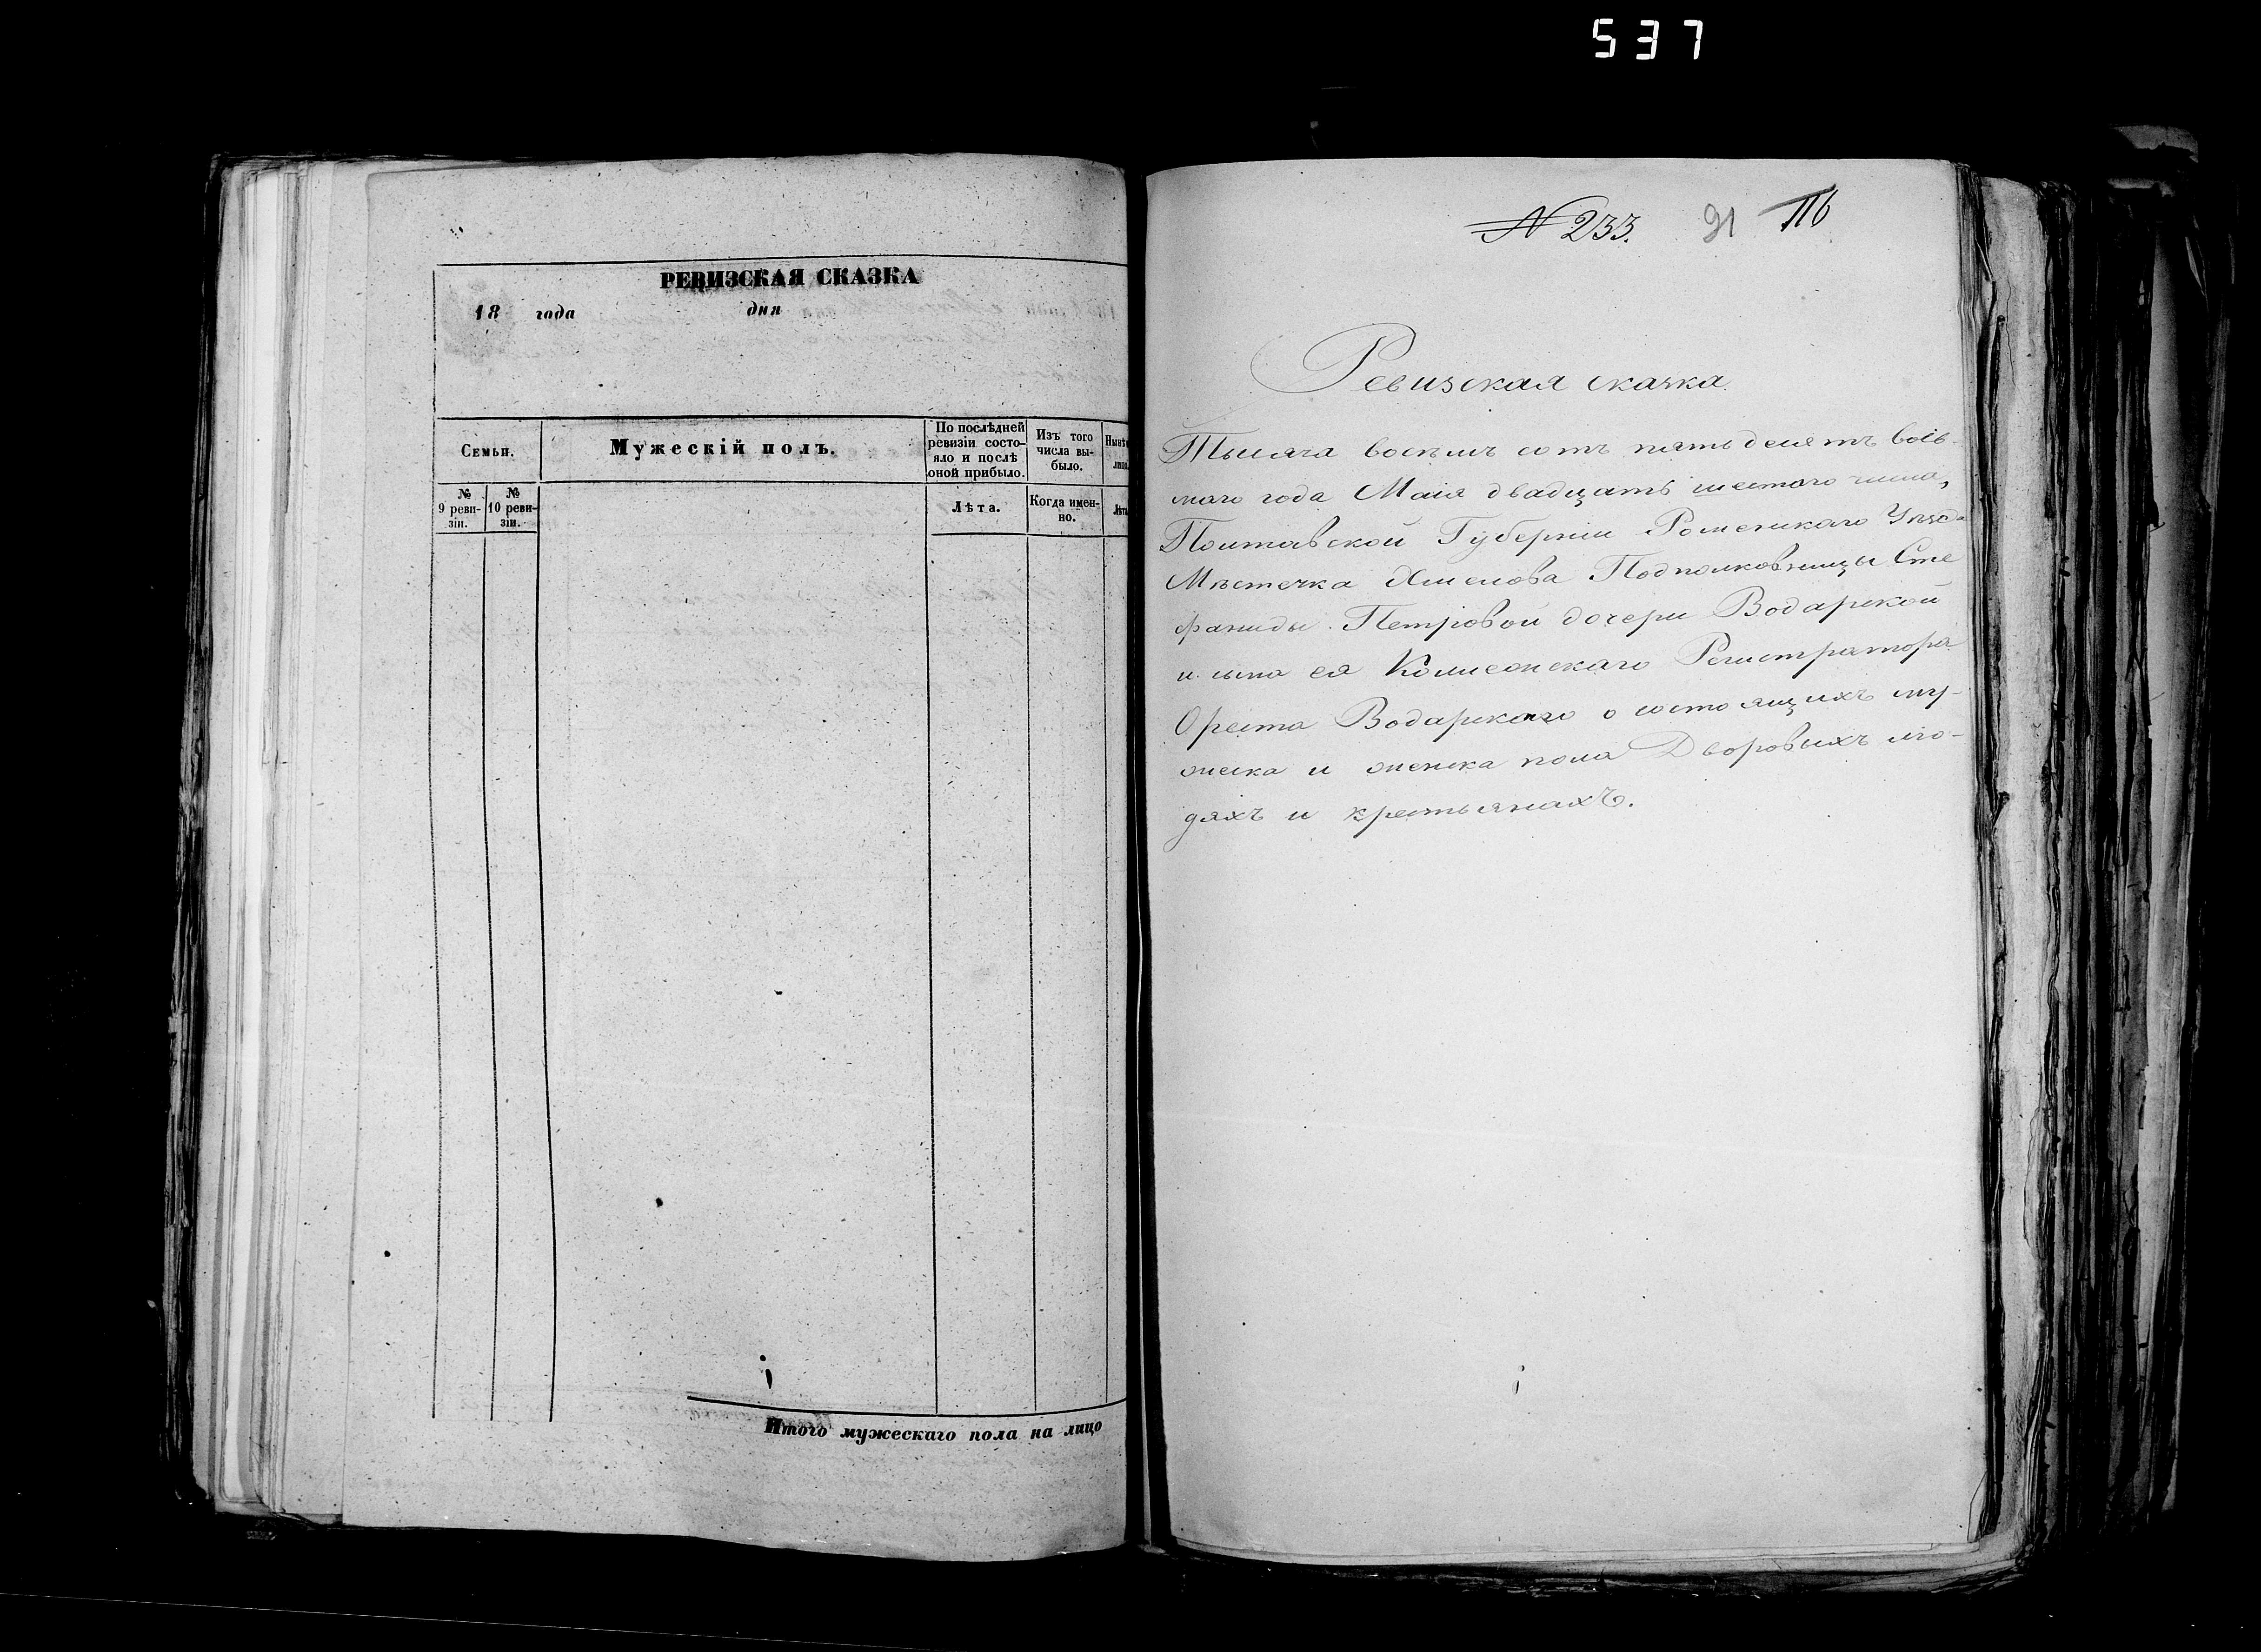 537
РЕВИЗСКАЯ СКАЗКА
18 года дня
Семьи.
Мужескій полъ.
По послѣдней ревизіи состояло и послѣ оной прибыло.
Изъ того числа выбыло.
№ 9 ревизіи.
№ 10 ревизіи.
Лѣта.
Когда именно.
Итого мужескаго пола на лицо
№ 233. 91 116
Ревизская сказка
Тысяча восемъ сотъ пятьдесятъ вось-
маго года Маія двадцать шестого числа,
Полтавской Губерніи Роменскаго Уѣзда
Мѣстечка Хмелова Подполковницы Сте
фаниды Петровой дочери Водарской
и сына ея Колиеонскаго Регистратора
Ореста Водарскаго о состоящихъ му-
жеска и женска пола Дворовыхъ лю-
дяхъ и крестьянахъ.